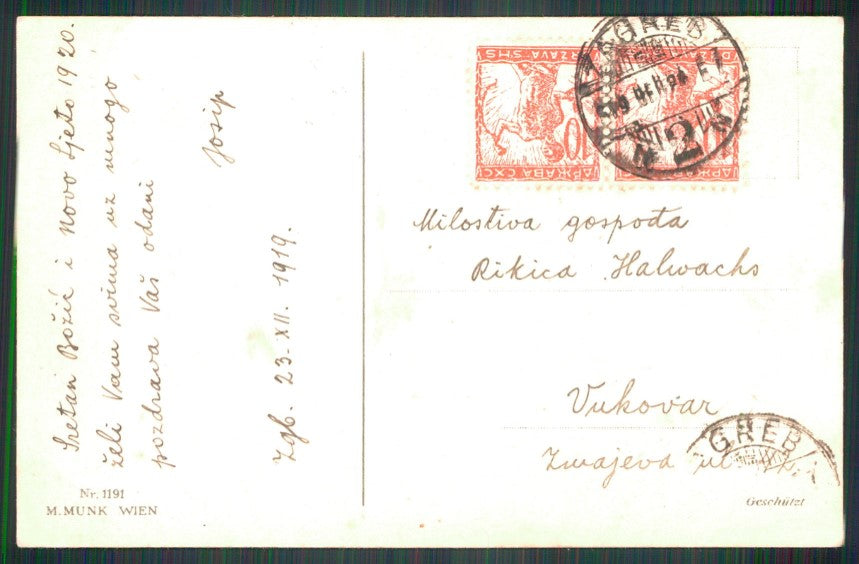 Sretan Božić i novo ljeto 1920.
želi Vam svima uz mnogo
pozdrava Vaš odani
Josip
Zgb. 23. XII. 1919.
Nr. 1191
M. MUNK WIEN
DRŽAVA SHS
10
ДРЖАВА СХС
DRŽAVA SHS
ДРЖАВА
ZAGREB
2
Milostiva gospođa
Rikica Halwachs
Vukovar
Zmajeva ul
GREB
Geschützt